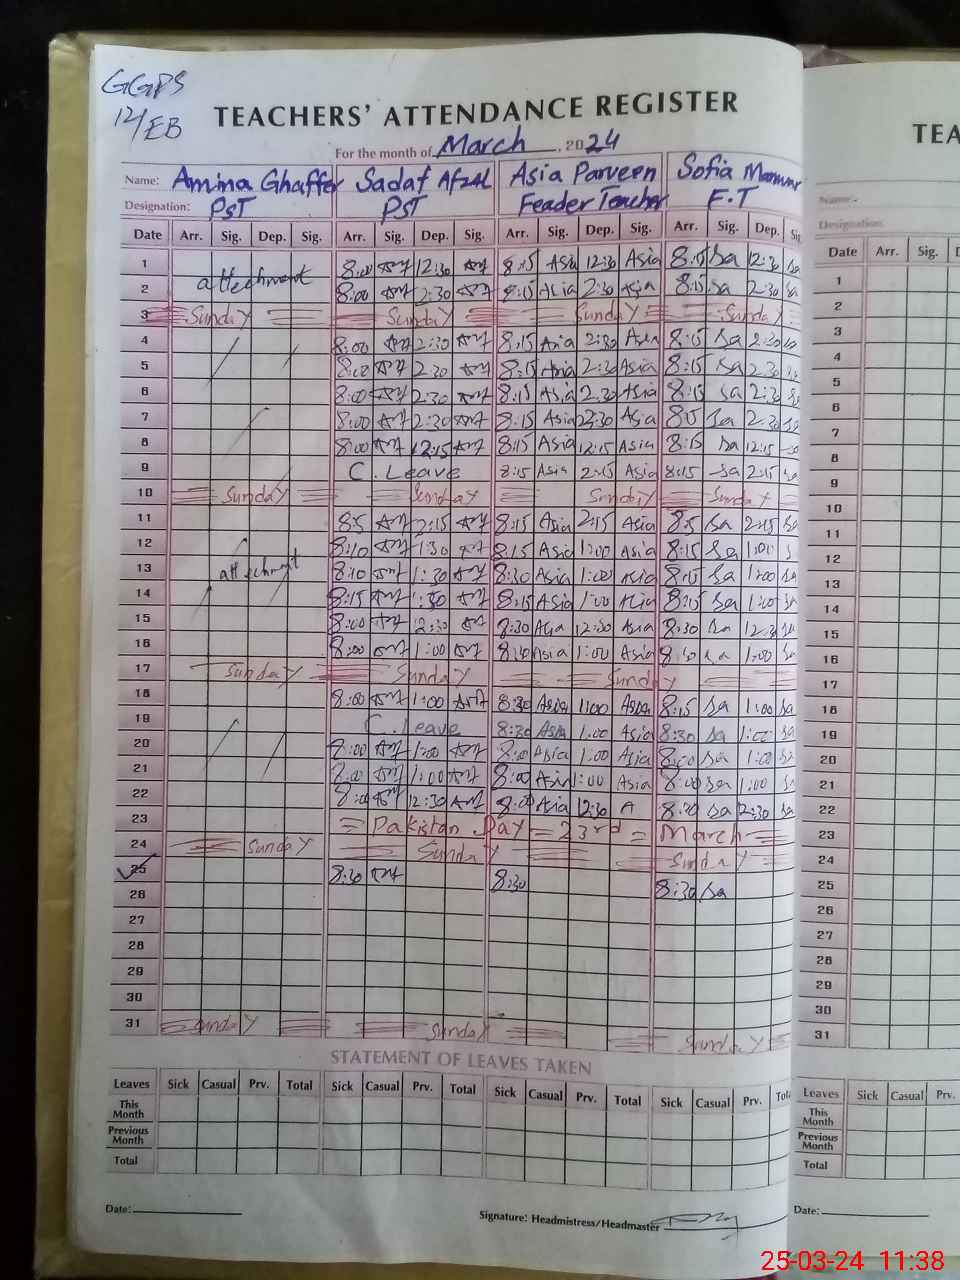 GGPS
12/EB
TEACHERS' ATTENDANCE REGISTER
TEA
For the month of March, 2024
Name: Amina Ghaffer Sadaf Afzal Asia Parveen Sofia
Designation: PST PST Feader Teacher F.T
Name:
Designation:
Date Arr. Sig. Dep. Sig. Arr. Sig. Dep. Sig. Arr. Sig. Dep. Sig. Arr. Sig. Dep. Sig
Date Arr. Sig. D
1 8:00 12:30 8:15 Asia 12:30 Asia 8:15 Sa 12:30 Sa
attechment
2 8:00 2:30 8:15 Asia 2:30 Asia 8:15 Sa 2:30 Sa
3 Sunday Sunday Sunday Sunday
4 8:00 2:30 8:15 Asia 2:30 Asia 8:15 Sa 2:30 Sa
5 8:00 2:30 8:15 Asia 2:30 Asia 8:15 Sa 2:30 Sa
6 8:00 2:30 8:15 Asia 2:30 Asia 8:15 Sa 2:30 Sa
7 8:00 2:30 8:15 Asia 2:30 Asia 8:15 Sa 2:30 Sa
8 8:00 12:15 8:15 Asia 12:15 Asia 8:15 Sa 12:15 Sa
9 C. Leave 8:15 Asia 2:15 Asia 8:15 Sa 2:15 Sa
10 Sunday Sunday Sunday Sunday
11 8:5 2:15 8:15 Asia 2:15 Asia 8:5 Sa 2:15 Sa
12 8:10 1:30 8:15 Asia 1:00 Asia 8:15 Sa 1:00 S
13 attechment 8:10 1:30 8:30 Asia 1:00 Asia 8:15 Sa 1:00 Sa
14 8:15 1:30 8:15 Asia 1:00 Asia 8:15 Sa 1:00 Sa
15 8:00 12:30 8:30 Asia 12:30 Asia 8:30 Sa 12:30 Sa
16 8:00 1:00 8:30 Asia 1:00 Asia 8:30 Sa 1:00 Sa
17 Sunday Sunday Sunday
18 8:00 1:00 8:30 Asia 1:00 Asia 8:15 Sa 1:00 Sa
19 C. Leave 8:30 Asia 1:00 Asia 8:30 Sa 1:00 Sa
20 8:00 1:00 8:00 Asia 1:00 Asia 8:00 Sa 1:00 Sa
21 8:00 1:00 8:00 Asia 1:00 Asia 8:00 Sa 1:00 Sa
22 8:00 12:30 8:00 Asia 12:30 A Sa 2:30 Sa
23 = Pakistan Day = 23rd = March
24 Sunday Sunday Sunday
25 8:30 8:30 8:30 Sa
26
27
28
29
30
31 Sunday Sunday Sunday
1
2
3
4
5
6
7
8
9
10
11
12
13
14
15
16
17
18
19
20
21
22
23
24
25
26
27
28
29
30
31
STATEMENT OF LEAVES TAKEN
Leaves Sick Casual Prv. Total Sick Casual Prv. Total Sick Casual Prv. Total Sick Casual Prv. Tot
Leaves Sick Casual Prv.
This Month
Previous Month
Total
This Month
Previous Month
Total
Date:
Signature: Headmistress/Headmaster
Date:
25-03-24 11:38